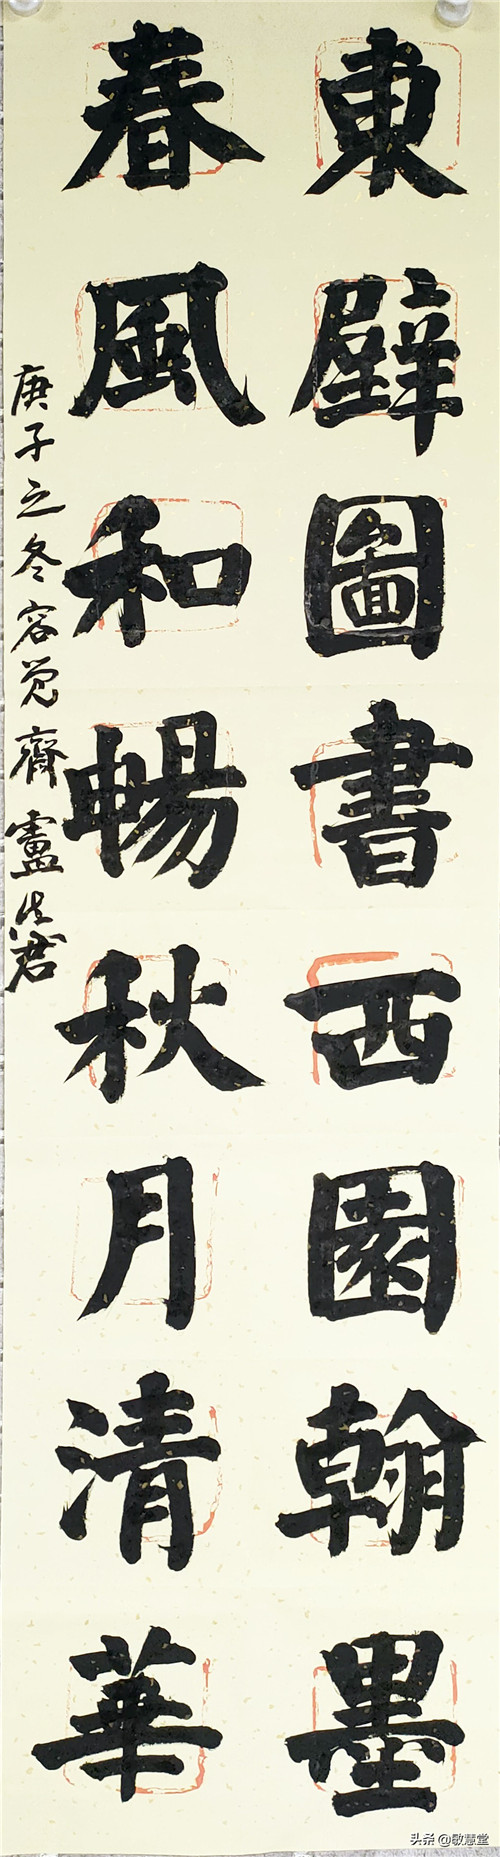 東壁圖書西園翰墨
春風和暢秋月清華
庚子之冬容覺齋盧
君
头条@敏慧堂